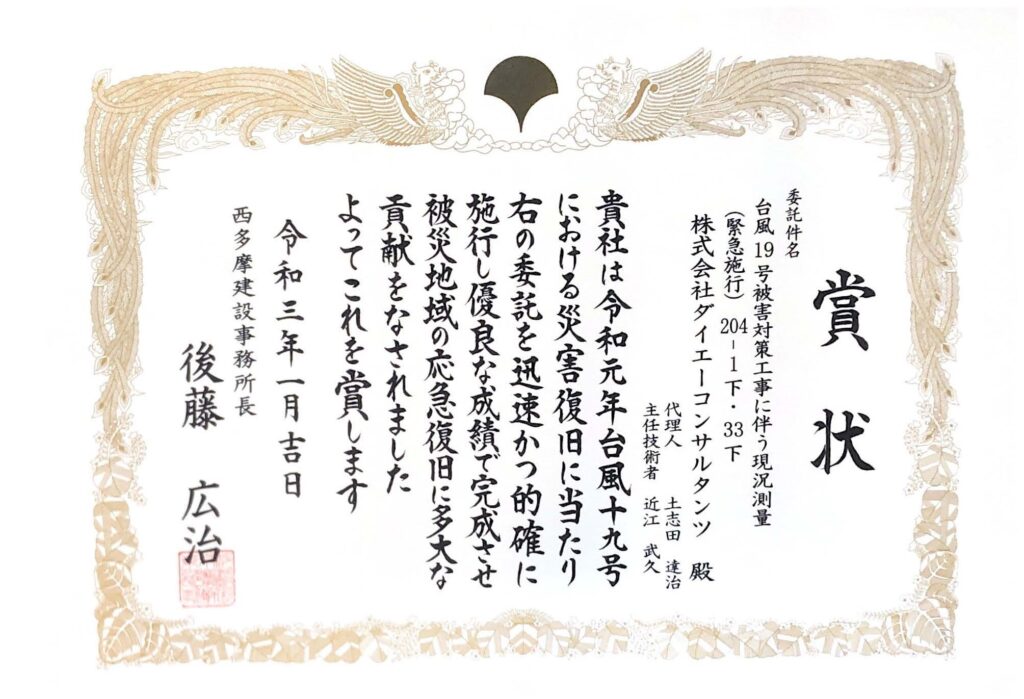 賞状
委託件名
台風19号被害対策工事に伴う現況測量
（緊急施行）204－1下・33下
株式会社ダイエーコンサルタンツ 殿
代理人 土志田 達治
主任技術者 近江 武久
貴社は令和元年台風十九号
における災害復旧に当たり
右の委託を迅速かつ的確に
施行し優良な成績で完成させ
被災地域の応急復旧に多大な
貢献をなされました
よってこれを賞します
令和三年一月吉日
西多摩建設事務所長
後藤 広治